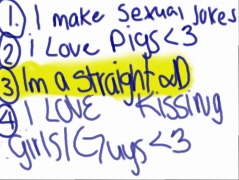 1. I make sexual jokes
2 i Love Pigs<3
3 Im a straight
4 I LOVE Kissing
Girls/Guys<3